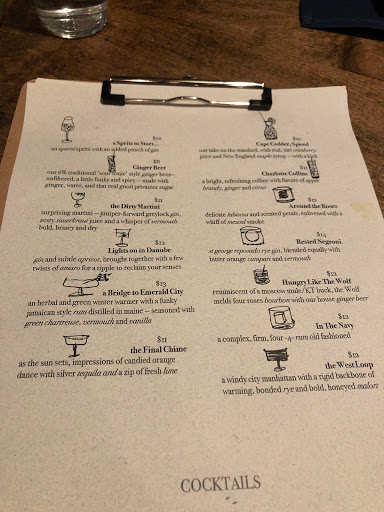 $10
a Spritz to Start...
an aperol spritz with an added punch of gin
$8
Ginger Beer
our 6% traditional 'sour tonic' style ginger beer–
unfiltered, a little funky and spicy – made with
ginger, water, and that real good privateer sugar
$11
the Dirty Martini
surprising martini – juniper-forward greylock gin,
zesty cauerkraut juice and a whisper of vermouth
bold, briney and dry
$12
Lights on in Danube
gin and subtle apricot, brought together with a few
twists of amaro for a tipple to reclaim your senses
$13
a Bridge to Emerald City
an herbal and green winter warmer with a funky
jamaican style rum distilled in maine – seasoned with
green chartreuse, vermouth and vanilla
$11
the Final Chime
as the sun sets, impressions of candied orange
dance with silver tequila and a zip of fresh lime
Cape Codder, Spiced
our take on the standard, with real, tart cranberry
juice and New England maple syrup – with a kick
$11
Charlotte Collins
a bright, refreshing collins with flavors of apple
brandy, ginger and citrus
$12
Around the Roses
delicate hibiscus and scented petals, enlivened with a
whiff of mezcal smoke
$14
Rested Negroni
st george reposado rye gin, blended equally with
bitter orange campari and vermouth
$12
Hungry Like The Wolf
reminiscent of a moscow mule/KY buck, the Wolf
melds four roses bourbon with our house ginger beer
$12
In The Navy
a complex, firm, four -4- rum old fashioned
$12
the West Loop
a windy city manhattan with a rigid backbone of
warming, bonded rye and bold, honeyed malort
COCKTAILS